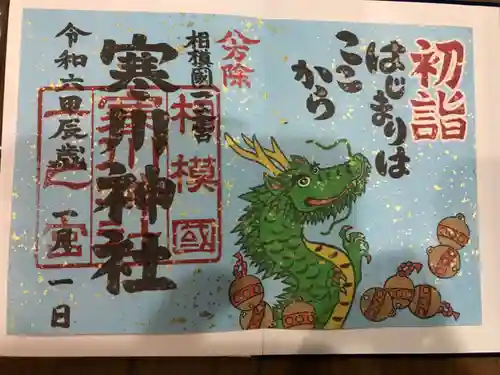 初詣
はじまりは
ここ
から
八方除
相模國一之宮
寒川神社
令和六甲辰歳 一月一日
相模國